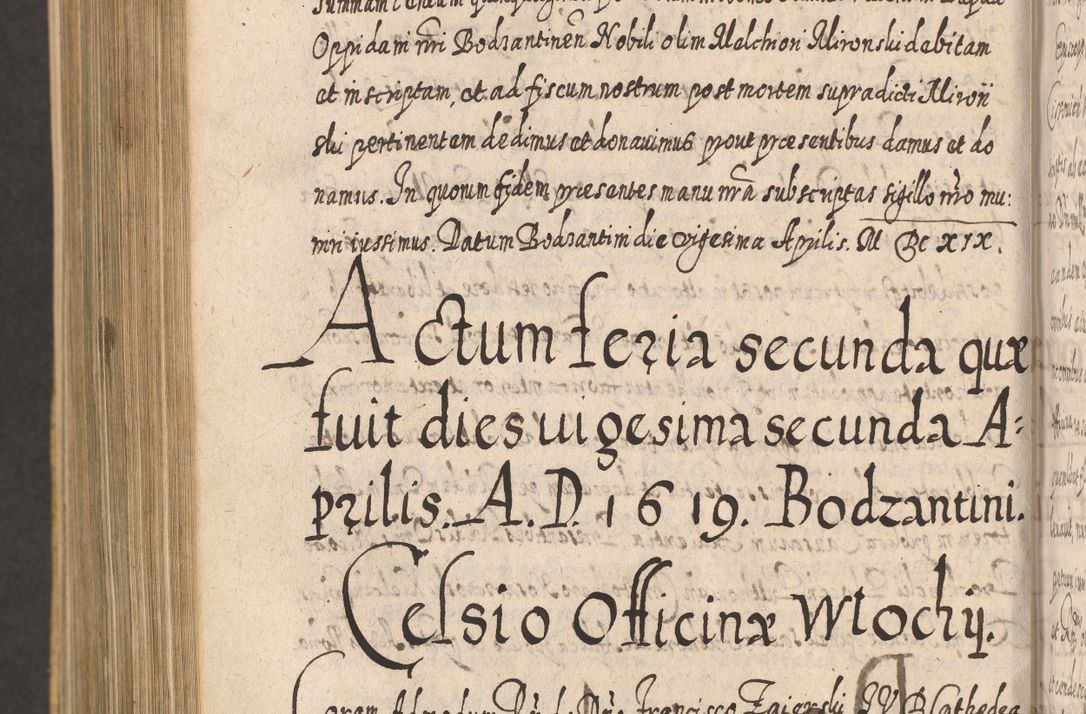 Oppidani nri Bodzantinen Nobili olim Melchiori Mironski debitam
et inscriptam, et ad fiscum nostrum post mortem supradicti Miron
ski pertinentem dedimus et donauimus prout præsentibus damus et do
namus. In quorum fidem præsentes manu nra subscriptas sigillo nro mu:
niri iussimus. Datum Bodzantini die vigesima Aprilis. M DC XIX.
Actum feria secunda quæ
fuit dies uigesima secunda A:
prilis. A. D. 1619. Bodzantini.
Celsio Officinæ Wlochij.
Coram Francisco Zaierski Cathedra